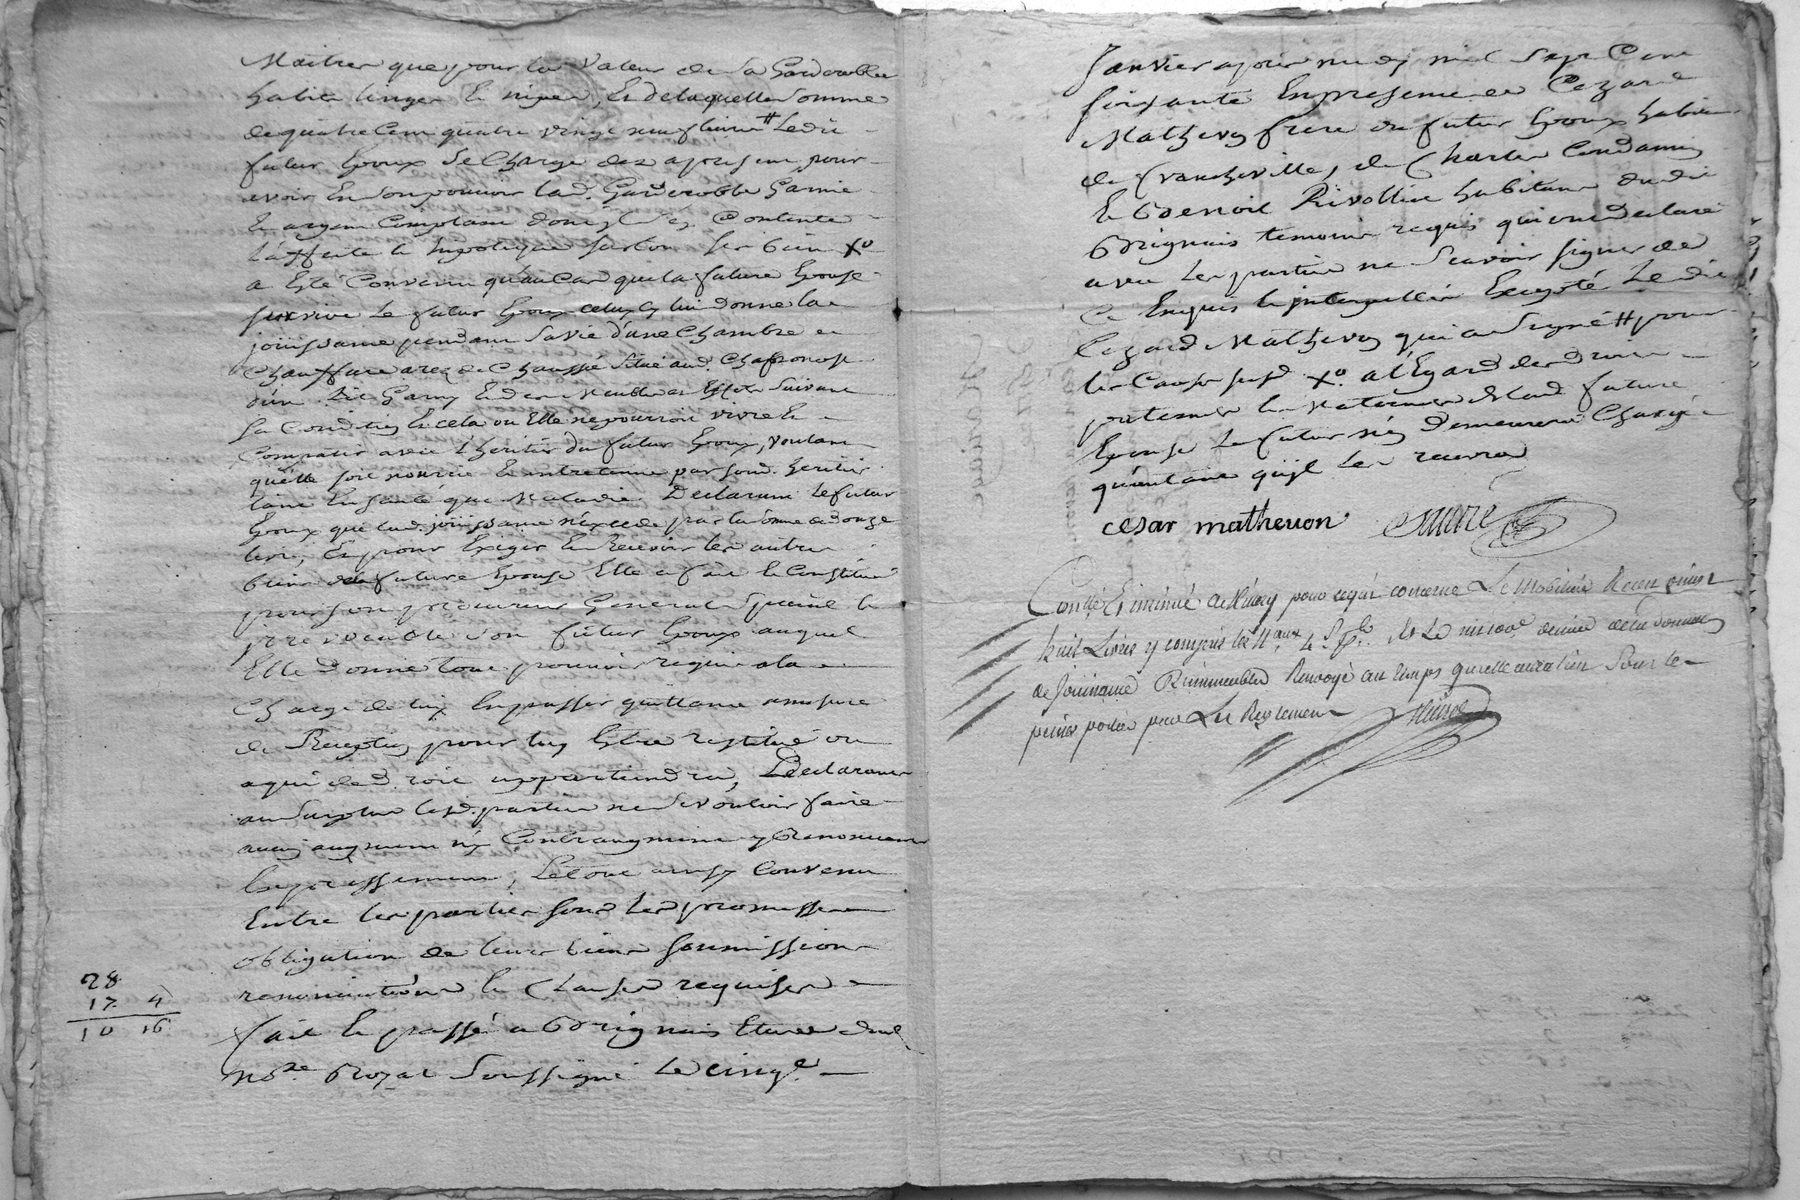 Maitres que pour la valeur de sa Garderobbe
habits linges
de quatre cent quatre vingt neuf livres # Ledit
futur Epoux se Charge des apresent pour
avoir En son pouvoir lad. Garderobbe Garnie
Et argent Comptant dont il
Laffecte et hypoteque sur tous ses biens Xo
a Esté Convenu qu'au Cas que la future Epouse
survive Le futur Epoux celuy cy lui donne la
joüissance pendant sa vie d'une Chambre
d'un Lit Garny Et des Meubles et Effets suivant
sa Condition Et cela ou Elle ne pourroit vivre Et
Compatir avec L'heritier du futur Epoux, voulant
qu'elle soit nourrie Et entretenue par sond. heritier
tant En santé que Maladie. Declarant Le futur
Epoux que lad. joüissance n'excede pas la somme de douze
livres, Et pour Exiger Et Recevoir les autres
biens de la future Epouse Elle a fait Et Constitué
pour son procureur General special Et
irrevocable son futur Epoux auquel
Elle donne tout pouvoir requis a la
Charge de luy En passer quittance a mesure
de Reception pour luy Estre restitué ou
a qui de droit appartiendra, Declarant
au surplus lesd. parties ne vouloir faire
aucun augment ny Contraugment y Renonceant
Expressement, Le tout ainsy Convenu
Entre les parties sous Les promesses
obligation de leurs biens soumissions
renonciations Et Clauses requises
fait Et passé a Brignais Etude dud.
No.re Royal Soussigné Le cinq.e
28
17 4
10 16
Janvier apres midy mil Sept Cent
soixante En presence de Cezard
Mathevon frere du futur Epoux habitant
de Francheville, de Charles Condamin
Et Benoit Rivollier habitans dudit
Brignais temoins requis qui ont declaré
avec Les parties ne Scavoir signer de
ce Enquis Et interpellés Excepté Le dit
Cezard Mathevon qui a Signé # pour
les Causes susd. Xo. a l'Egard des droits
paternels Et Maternels de lad. future
Epouse Le futur n'en demeurera Chargé
qu'autant qu'il les recevra
cesar matheuon
Con.lé Et insinué pour ce qui concerne Le Mobilier Recu
huit Livres y compris les
de Jouissance Renvoyé au temps qu'elle aura lieu Sous les
peines portées par Les Reglements